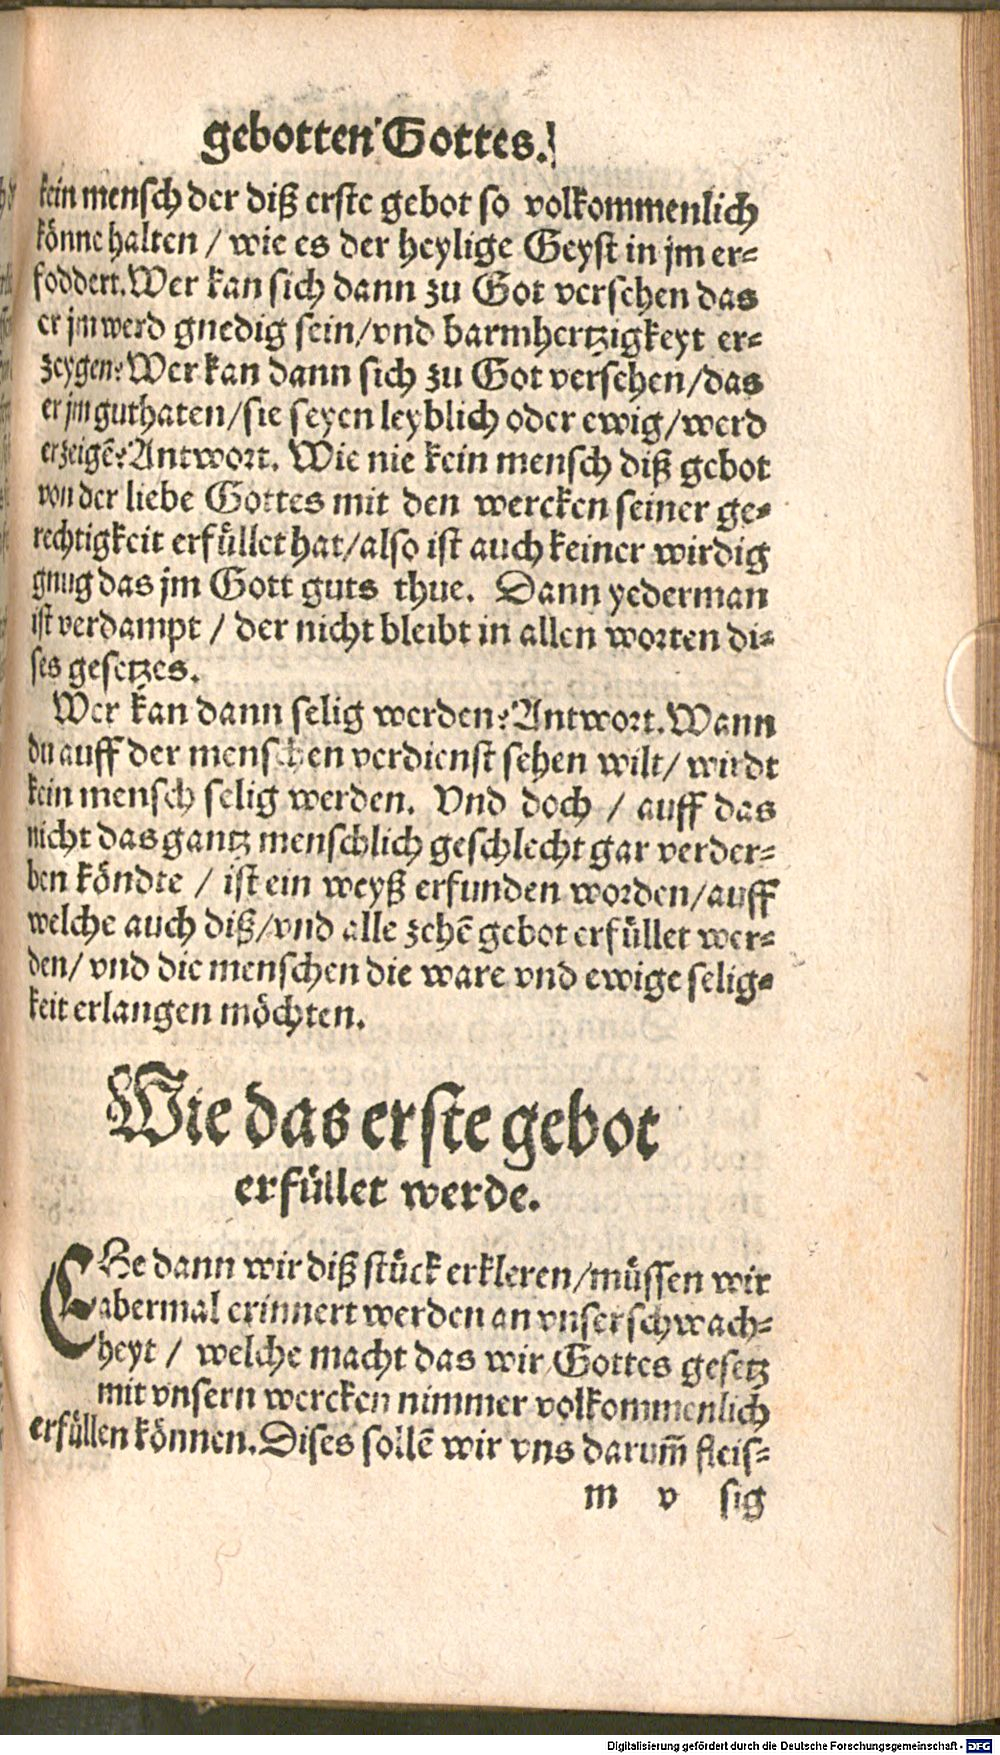 gebotten Gottes.
kein mensch der diß erste gebot so volkommenlich
könne halten / wie es der heylige Geyst in jm er-
foddert. Wer kan sich dann zu Got versehen das
er jm werd gnedig sein/vnd barmhertzigkeyt er-
zeygen? Wer kan dann sich zu Got versehen/das
er jm guthaten/sie seyen leyblich oder ewig/werd
erzeigē? Antwort. Wie nie kein mensch diß gebot
von der liebe Gottes mit den wercken seiner ge-
rechtigkeit erfüllet hat/also ist auch keiner wirdig
gnug das jm Gott guts thue. Dann yederman
ist verdampt / der nicht bleibt in allen worten di-
ses gesetzes.
Wer kan dann selig werden? Antwort. Wann
du auff der menschen verdienst sehen wilt/ wirdt
kein mensch selig werden. Vnd doch / auff das
nicht das gantz menschlich geschlecht gar verder-
ben köndte / ist ein weyß erfunden worden/auff
welche auch diß/vnd alle zehē gebot erfüllet wer-
den/ vnd die menschen die ware vnd ewige selig-
keit erlangen möchten.
Wie das erste gebot
erfüllet werde.
EHe dann wir diß stück erkleren/müssen wir
abermal erinnert werden an vnser schwach-
heyt / welche macht das wir Gottes gesetz
mit vnsern wercken nimmer volkommenlich
erfüllen können. Dises sollē wir vns darum̄ fleis-
m v sig
Digitalisierung gefördert durch die Deutsche Forschungsgemeinschaft - DFG